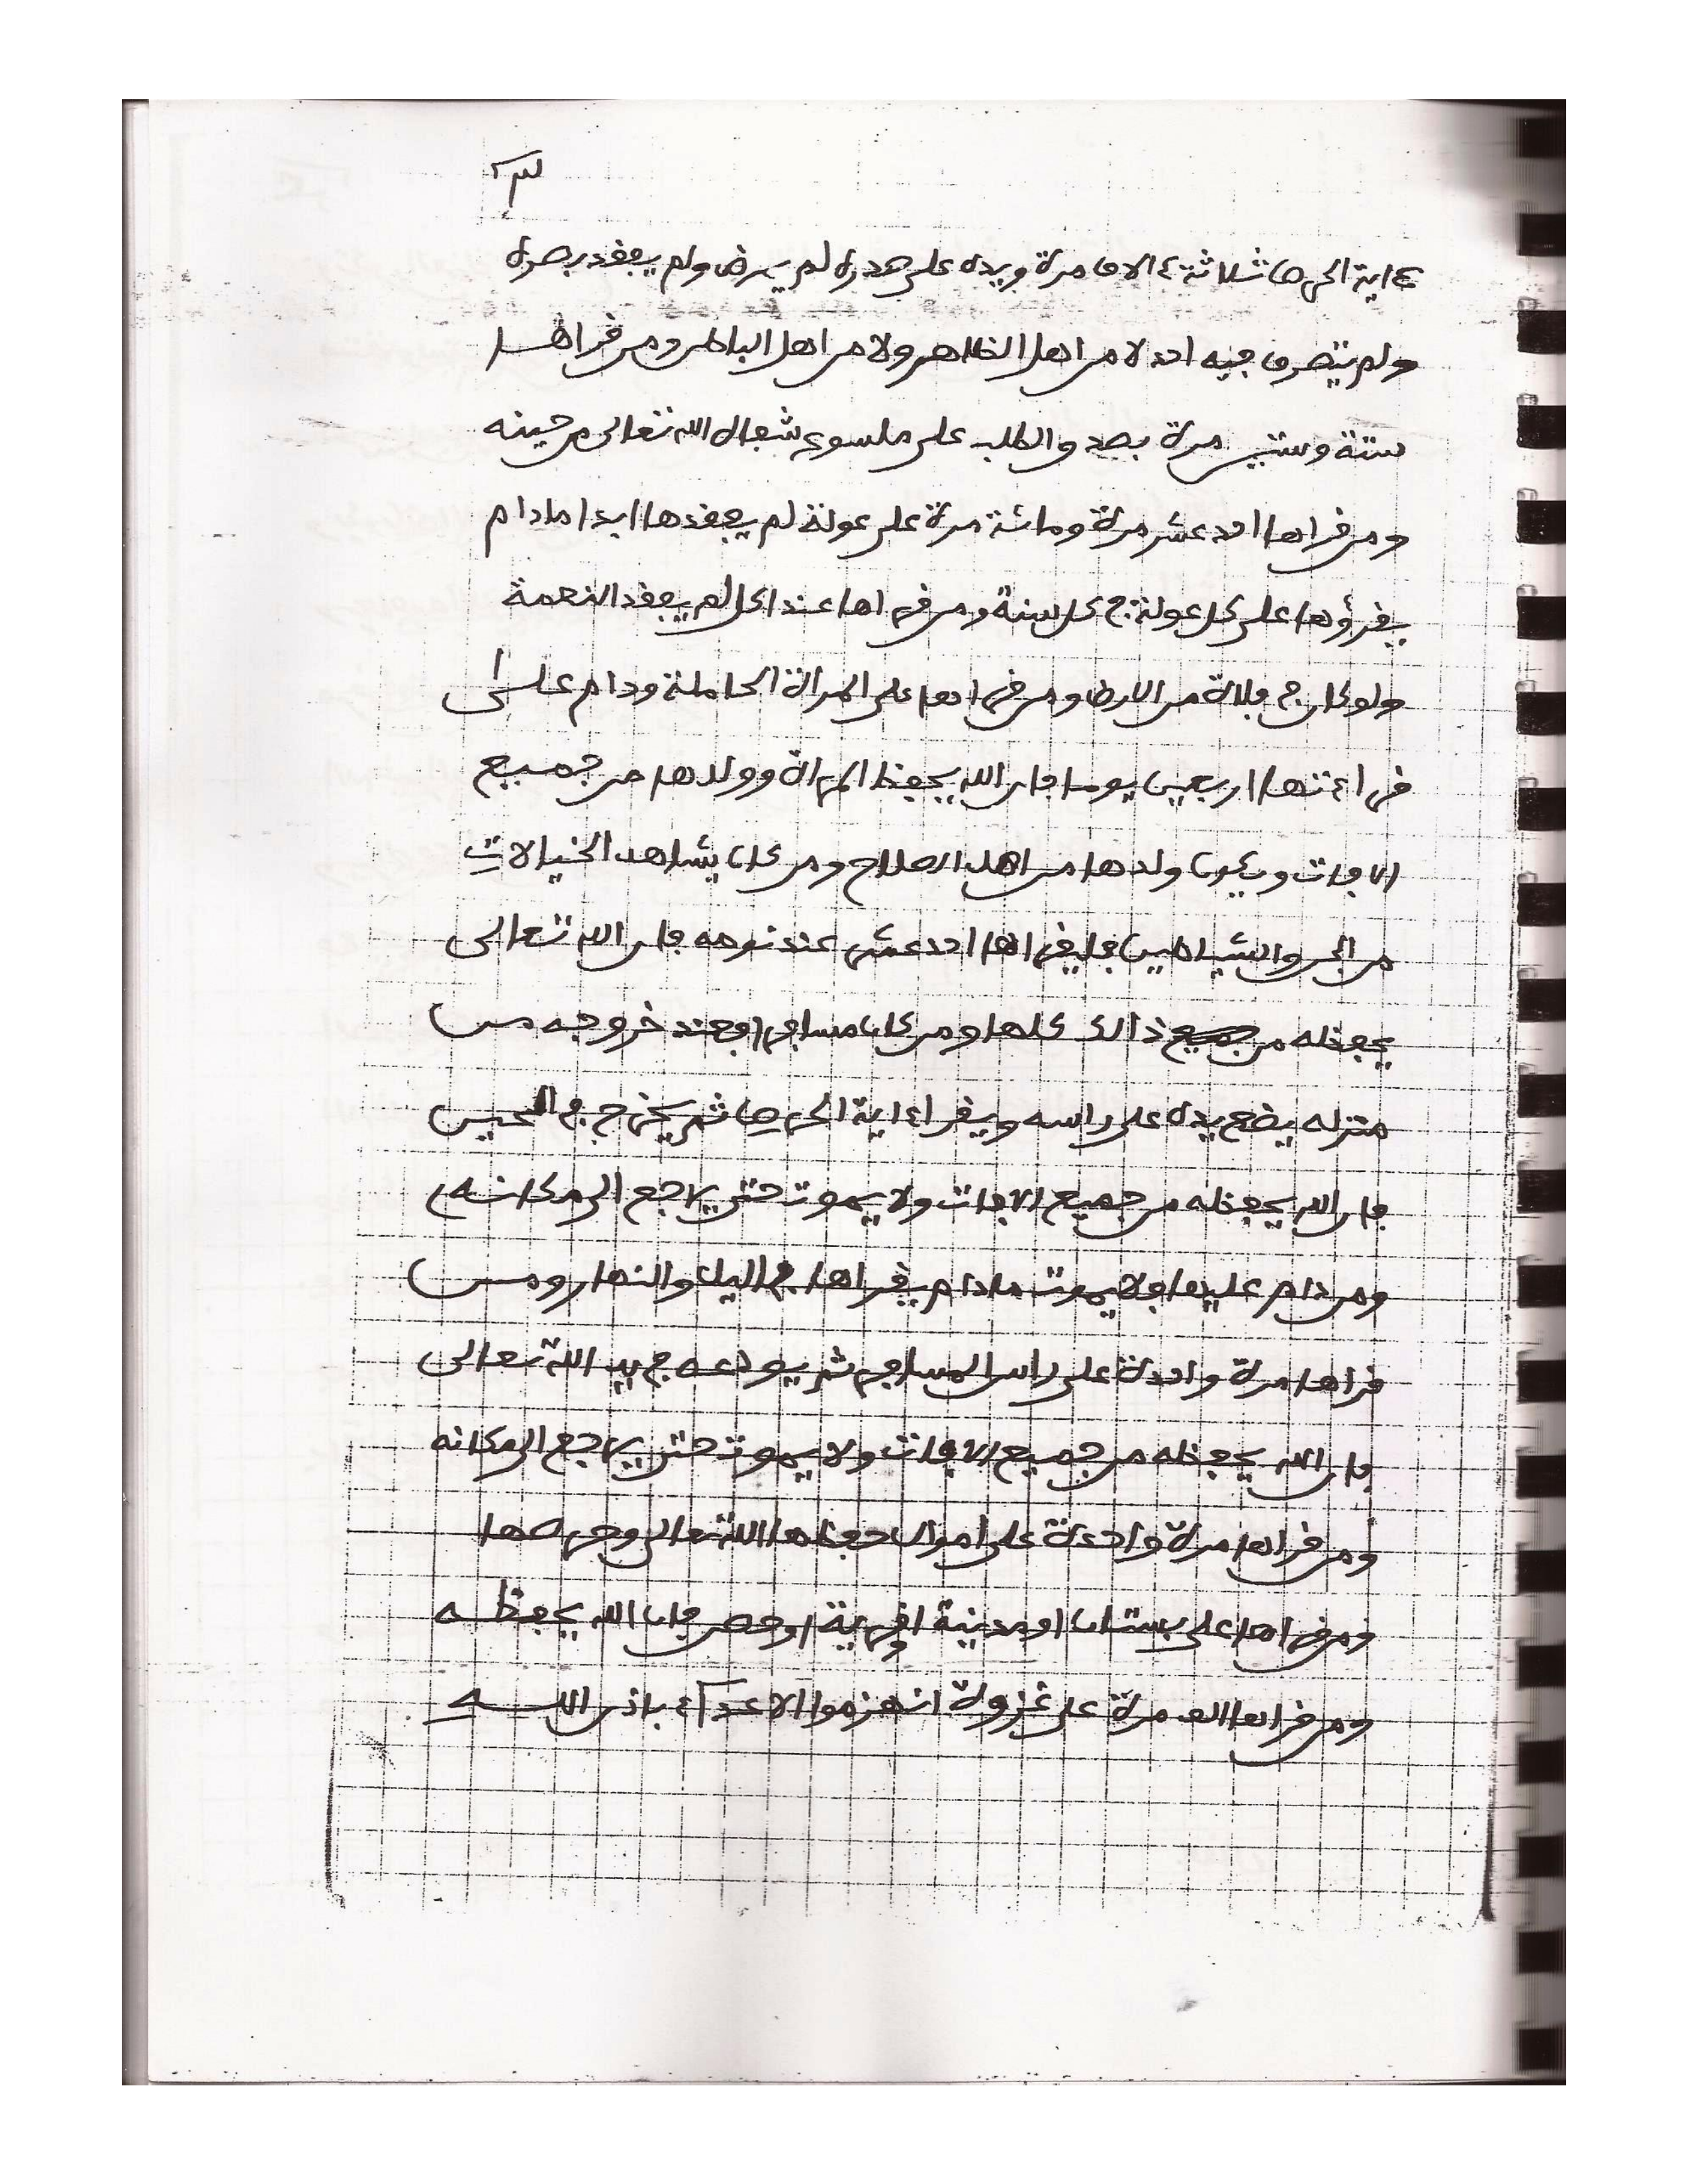 ءاية الحرص ثلاثة ءالاف مرة ويده على صدره لم يمرض ولم يفقد بصره
ولم يتصرف فيه احد لا من اهل الظاهر ولا من اهل الباطن ومن قراها
ستة وستين مرة بعد والطلب على ملسوع شفاه الله تعالى من حينه
ومن قراها احد عشر مرة ومائة مرة على عولة لم يفقدها ابدا مادام
يقرؤها على كل عولة في كل سنة ومن قراها عند اكل لم يفقد النعمة
ولو كان في فلاة من الارض ومن قراها على المراة الحاملة ودام على
قراءتها اربعين يوما فان الله يحفظ المراة وولدها من جميع
الافات ويكون ولدها من اهل الصلاح ومن كان يشاهد الخيالات
من الجن والشياطين فليقراها احد عشر عند نومه فان الله تعالى
يحفظه من جميع ذالك كلها ومن كان مسافرا فعند خروجه من
منزله يضع يده على راسه ويقرا ءاية الحرص ثم يخرج في الحين
فان الله يحفظه من جميع الافات ولا يموت حتى يراجع الى مكانه
ومن دام عليها فلا يموت مادام يقراها في اليل والنهار ومن
قراها مرة واحدة على راس المسافر ثم يودعه في يد الله تعالى
فان الله يحفظه من جميع الافات ولا يموت حتى يراجع الى مكانه
ومن قراها مرة واحدة على اموال حفظها الله تعالى وحرصها
ومن قراها على بستان او مدينة او قرية او حصن فان الله يحفظه
ومن قراها الف مرة على غزوة انهزموا الاعداء باذن الله